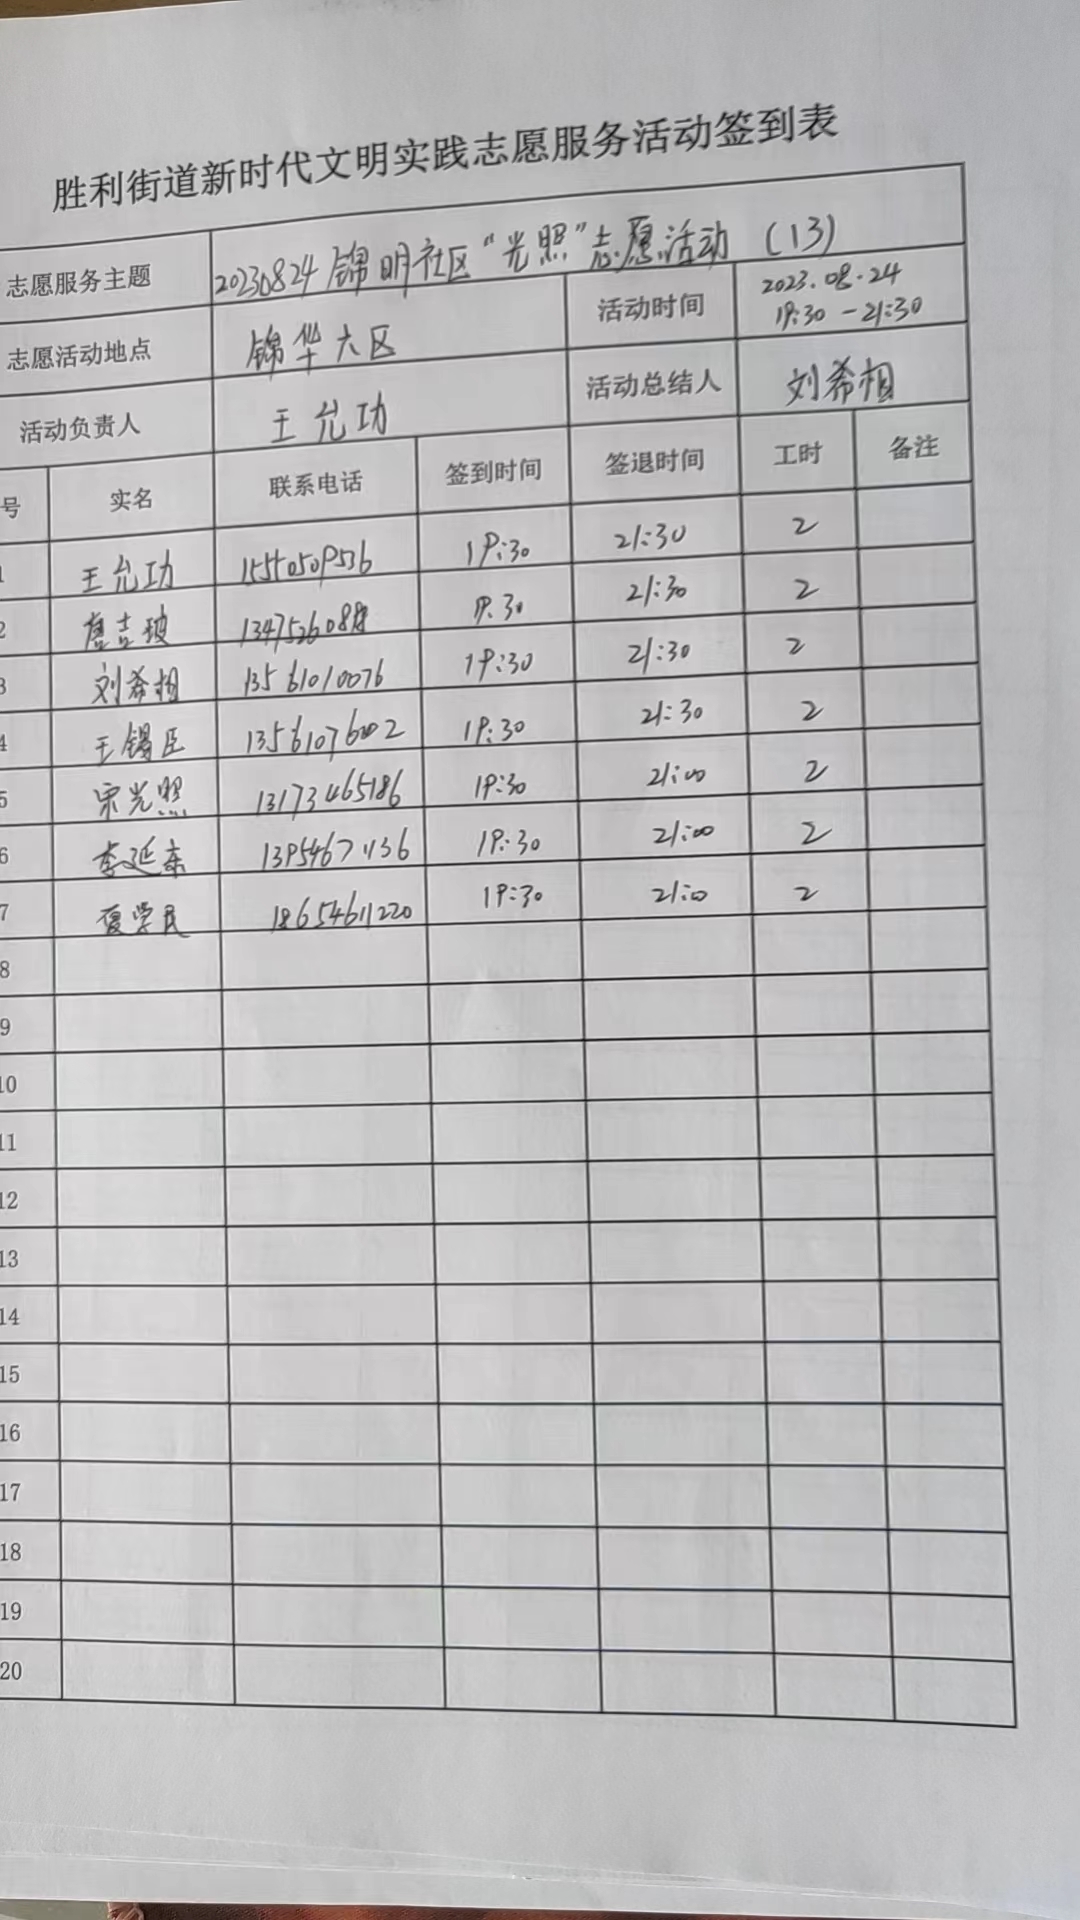 胜利街道新时代文明实践志愿服务活动签到表
志愿服务主题 20230824锦明社区“光照”志愿活动（13）
志愿活动地点 锦华六区 活动时间 2023.08.24 19:30-21:30
活动负责人 王允功 活动总结人 刘希相
号 实名 联系电话 签到时间 签退时间 工时 备注
1 王允功 19:30 21:30 2
2 唐吉玻 19:30 21:30 2
3 刘希相 13561010076 19:30 21:30 2
4 王锡臣 13561076002 19:30 21:30 2
5 宋光照 13173465186 19:30 21:00 2
6 李延东 13954671136 19:30 21:00 2
7 夏学民 18654611220 19:30 21:00 2
8
9
10
11
12
13
14
15
16
17
18
19
20